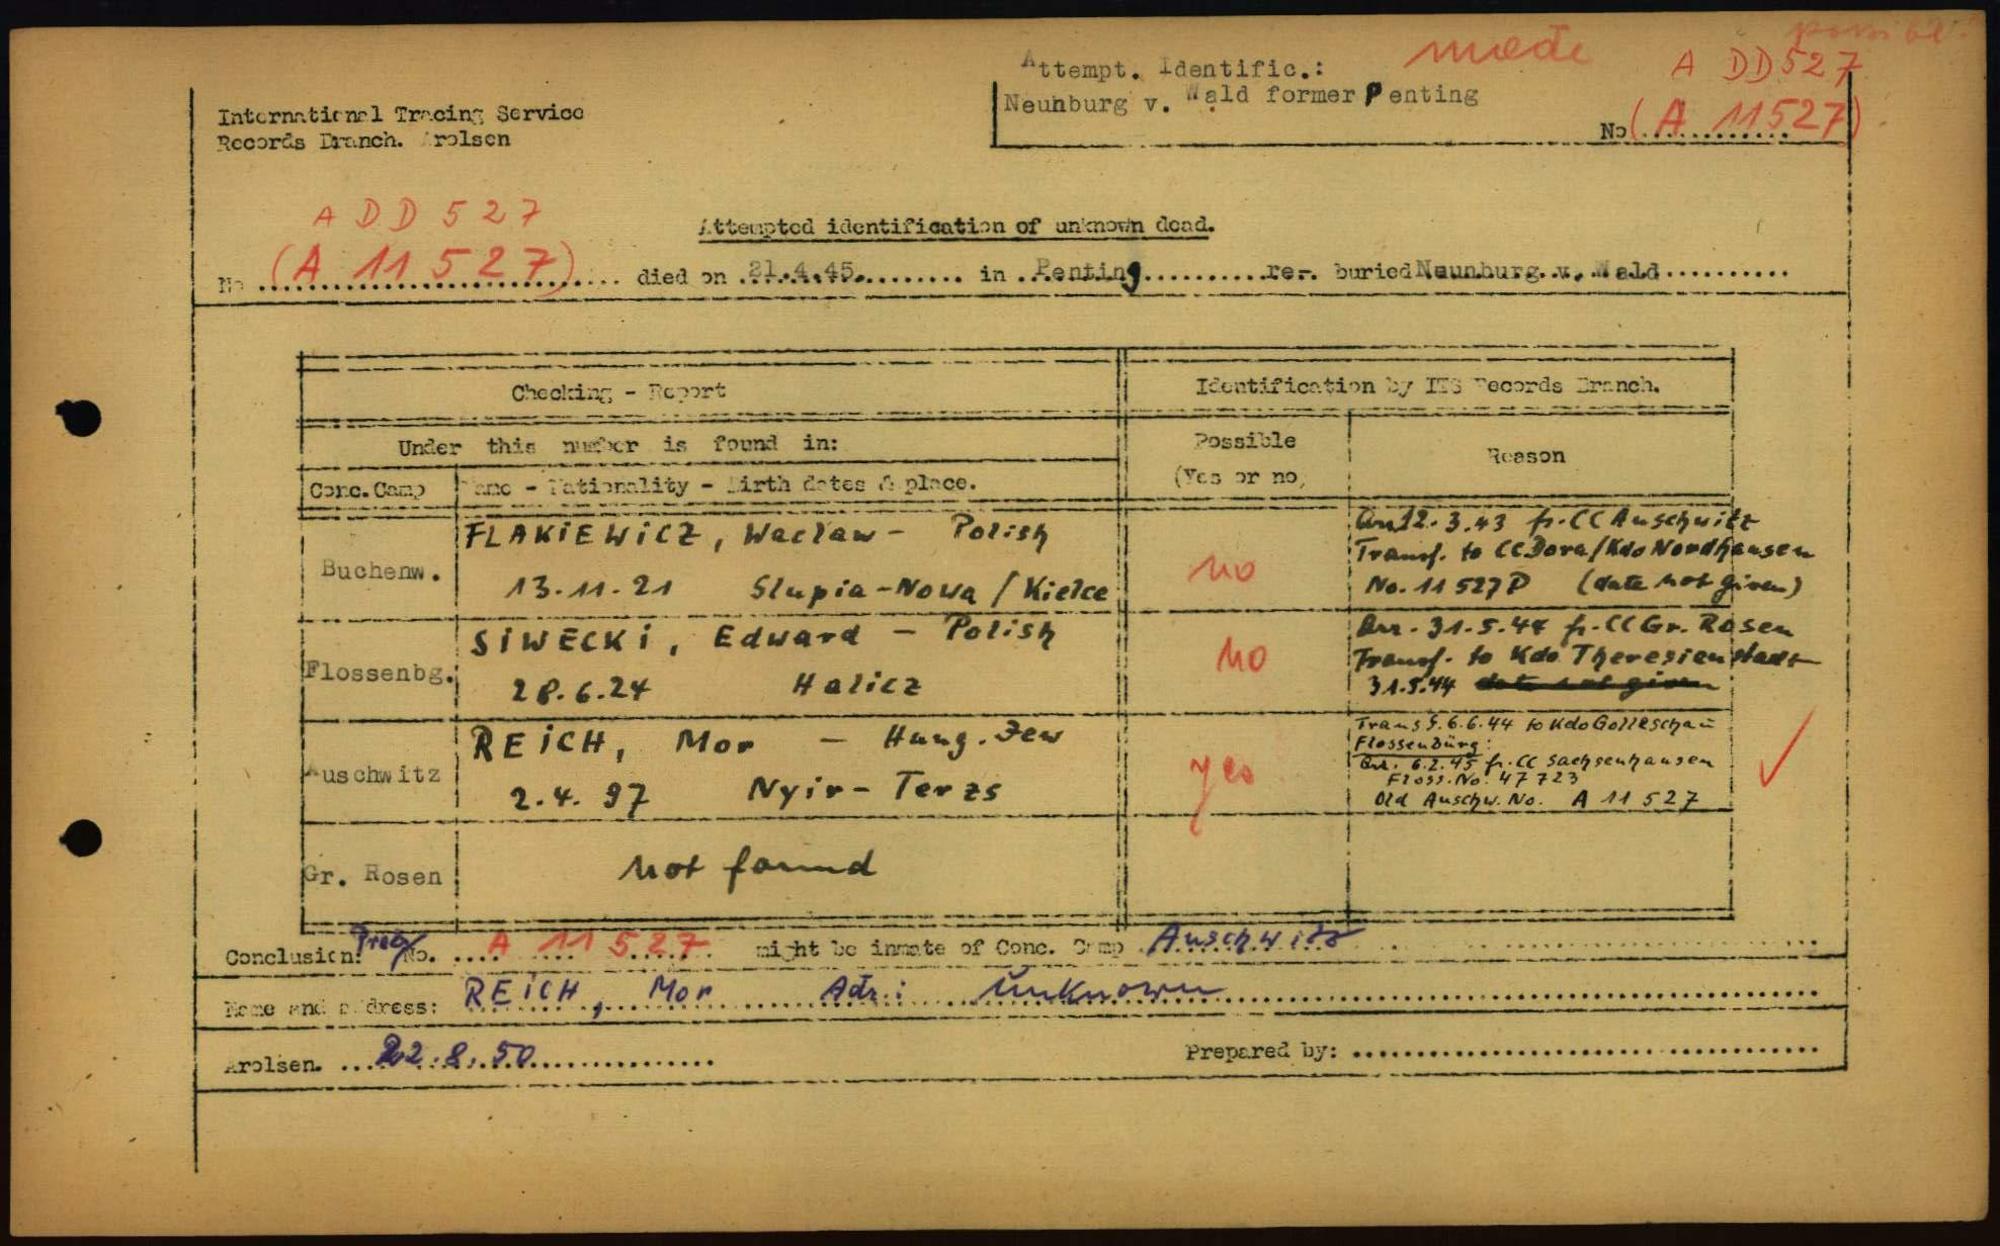 possible
Attempt. Identific.: made A DD 527
Neunburg v. Wald former Penting
No (A 11527)
International Tracing Service
Records Branch. Arolsen
A D D 5 2 7
Attempted identification of unknown dead.
No (A 11 527) died on 21.4.45. in Penting re-. buried Neunburg v. Wald
Checking - Report
Identification by ITS Records Branch.
Under this number is found in:
Possible
(Yes or no)
Reason
Conc. Camp Name - Nationality - Birth dates & place.
Buchenw.
FLAKIEWICZ, Waclaw - Polish
13.11.21 Slupia-Nowa / Kielce
no
Arr. 12.3.43 fr. CC Auschwitz
Transf. to CC Dora/Kdo Nordhausen
No. 11 527 P (date not given)
Flossenbg.
SIWECKI, Edward - Polish
28.6.24 Halicz
no
Arr. 31.5.44 fr. CC Gr. Rosen
Transf. to Kdo Theresienstadt
31.5.44 date not given
Auschwitz
REICH, Mor - Hung. Jew
2.4.97 Nyir-Terzs
yes
Transf. 6.6.44 to Kdo Golleschau
Flossenbürg:
Arr. 6.2.45 fr. CC Sachsenhausen
Floss. No. 47723
Old Auschw. No. A 11 527
Gr. Rosen
not found
Conclusion: No. A 11 527 might be inmate of Conc. Camp Auschwitz
Name and address: REICH, Mor Adr.: unknown
Arolsen. 22.8.50 Prepared by: